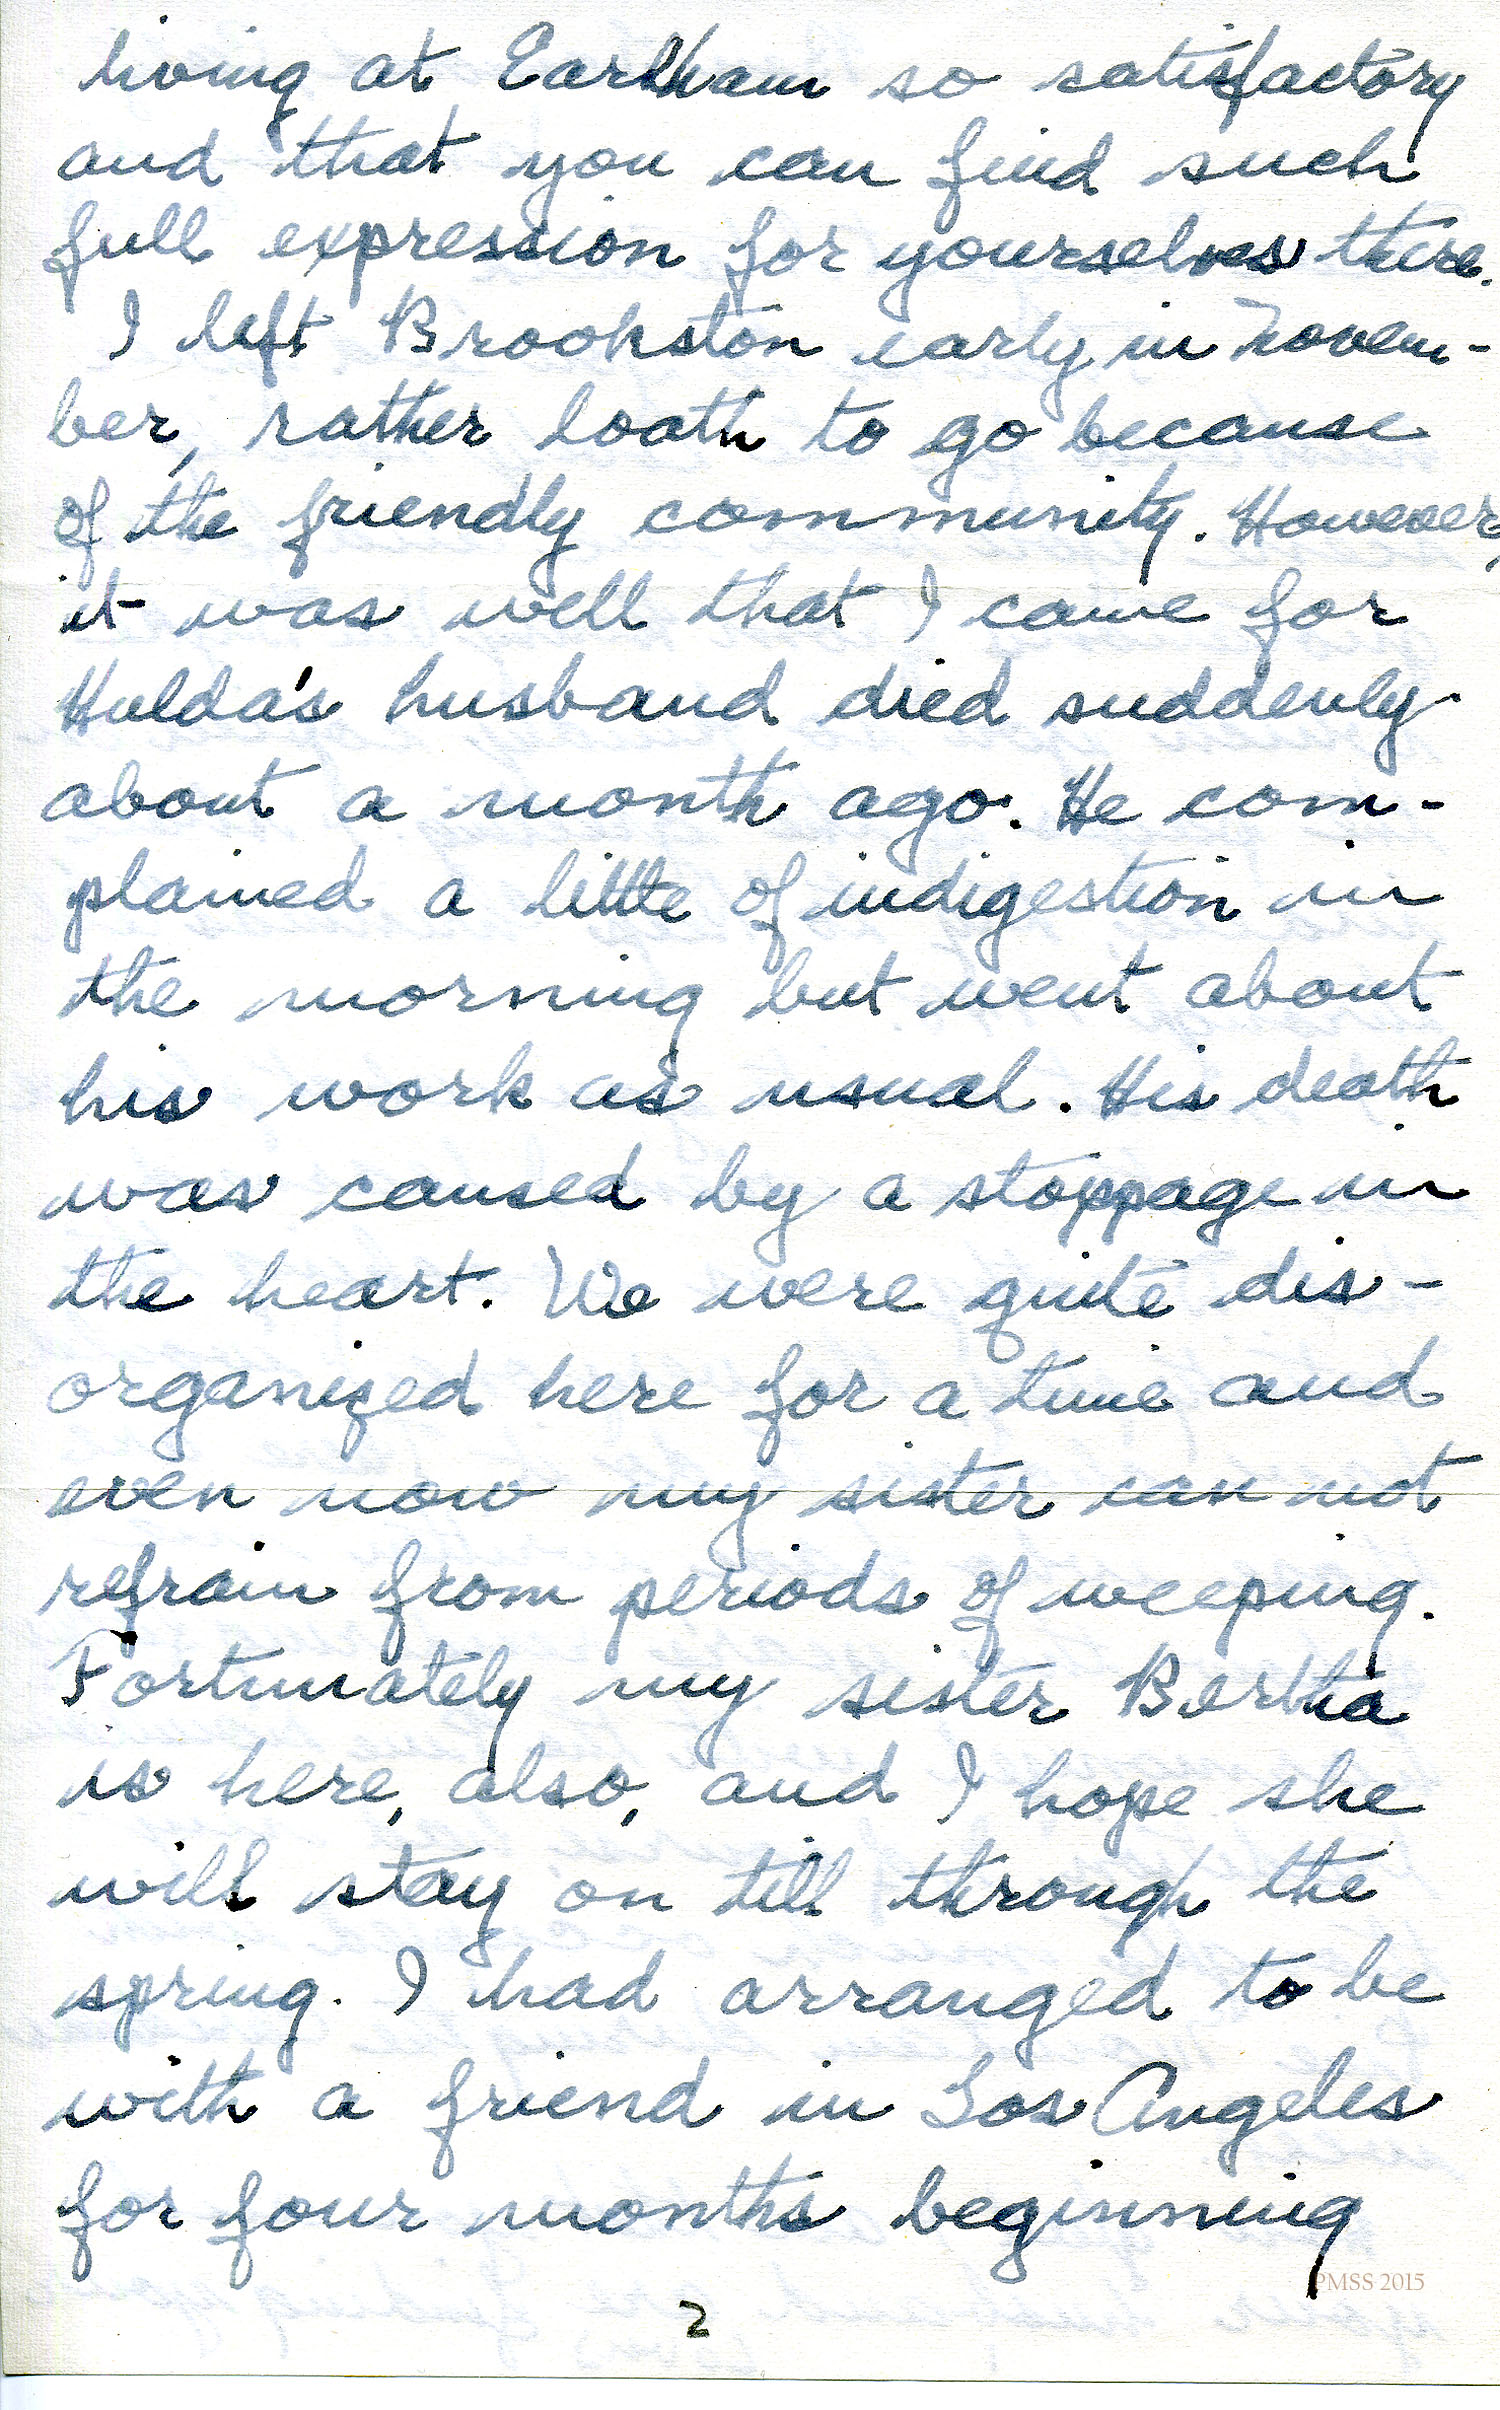 living at Earlham so satisfactory
and that you can find such
full expression for yourselves there.
I left Brookston early in Novem-
ber, rather loath to go because
of the friendly community. However,
it was well that I came for
Hulda's husband died suddenly
about a month ago. He com-
plained a little of indigestion in
the morning but went about
his work as usual. His death
was caused by a stoppage in
the heart. We were quite dis-
organized here for a time and
even now my sister can not
refrain from periods of weeping.
Fortunately my sister Bertha
is here, also, and I hope she
will stay on till through the
spring. I had arranged to be
with a friend in Los Angeles
for four months beginning
PMSS 2015
2